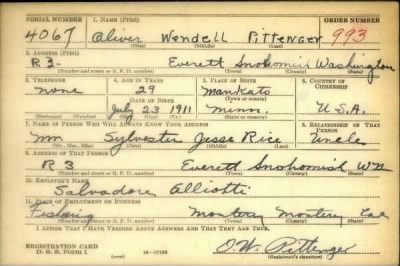 SERIAL NUMBER 1. NAME (Print) ORDER NUMBER
4067 Oliver Wendell Pittenger 993
(First) (Middle) (Last)
2. ADDRESS (Print)
R3- Everett Snohomish Washington
(Number and street or R. F. D. number) (Town) (County) (State)
3. TELEPHONE 4. AGE IN YEARS 5. PLACE OF BIRTH 6. COUNTRY OF CITIZENSHIP
none 29 Mankato
DATE OF BIRTH (Town or county)
July 23 1911 Minn. U.S.A.
(Mo.) (Day) (Yr.) (State or country)
7. NAME OF PERSON WHO WILL ALWAYS KNOW YOUR ADDRESS 8. RELATIONSHIP OF THAT PERSON
Mr. Sylvester Jesse Rice Uncle
(Mr., Mrs., Miss) (First) (Middle) (Last)
9. ADDRESS OF THAT PERSON
R3 Everett Snohomish Wn
(Number and street or R. F. D. number) (Town) (County) (State)
10. EMPLOYER'S NAME
Salvadore Alliotti
11. PLACE OF EMPLOYMENT OR BUSINESS
Fishing Monterey Monterey Cal
(Number and street or R. F. D. number) (Town) (County) (State)
I AFFIRM THAT I HAVE VERIFIED ABOVE ANSWERS AND THAT THEY ARE TRUE.
REGISTRATION CARD
D. S. S. Form 1 16-17105 O.W. Pittenger
(Registrant's signature)